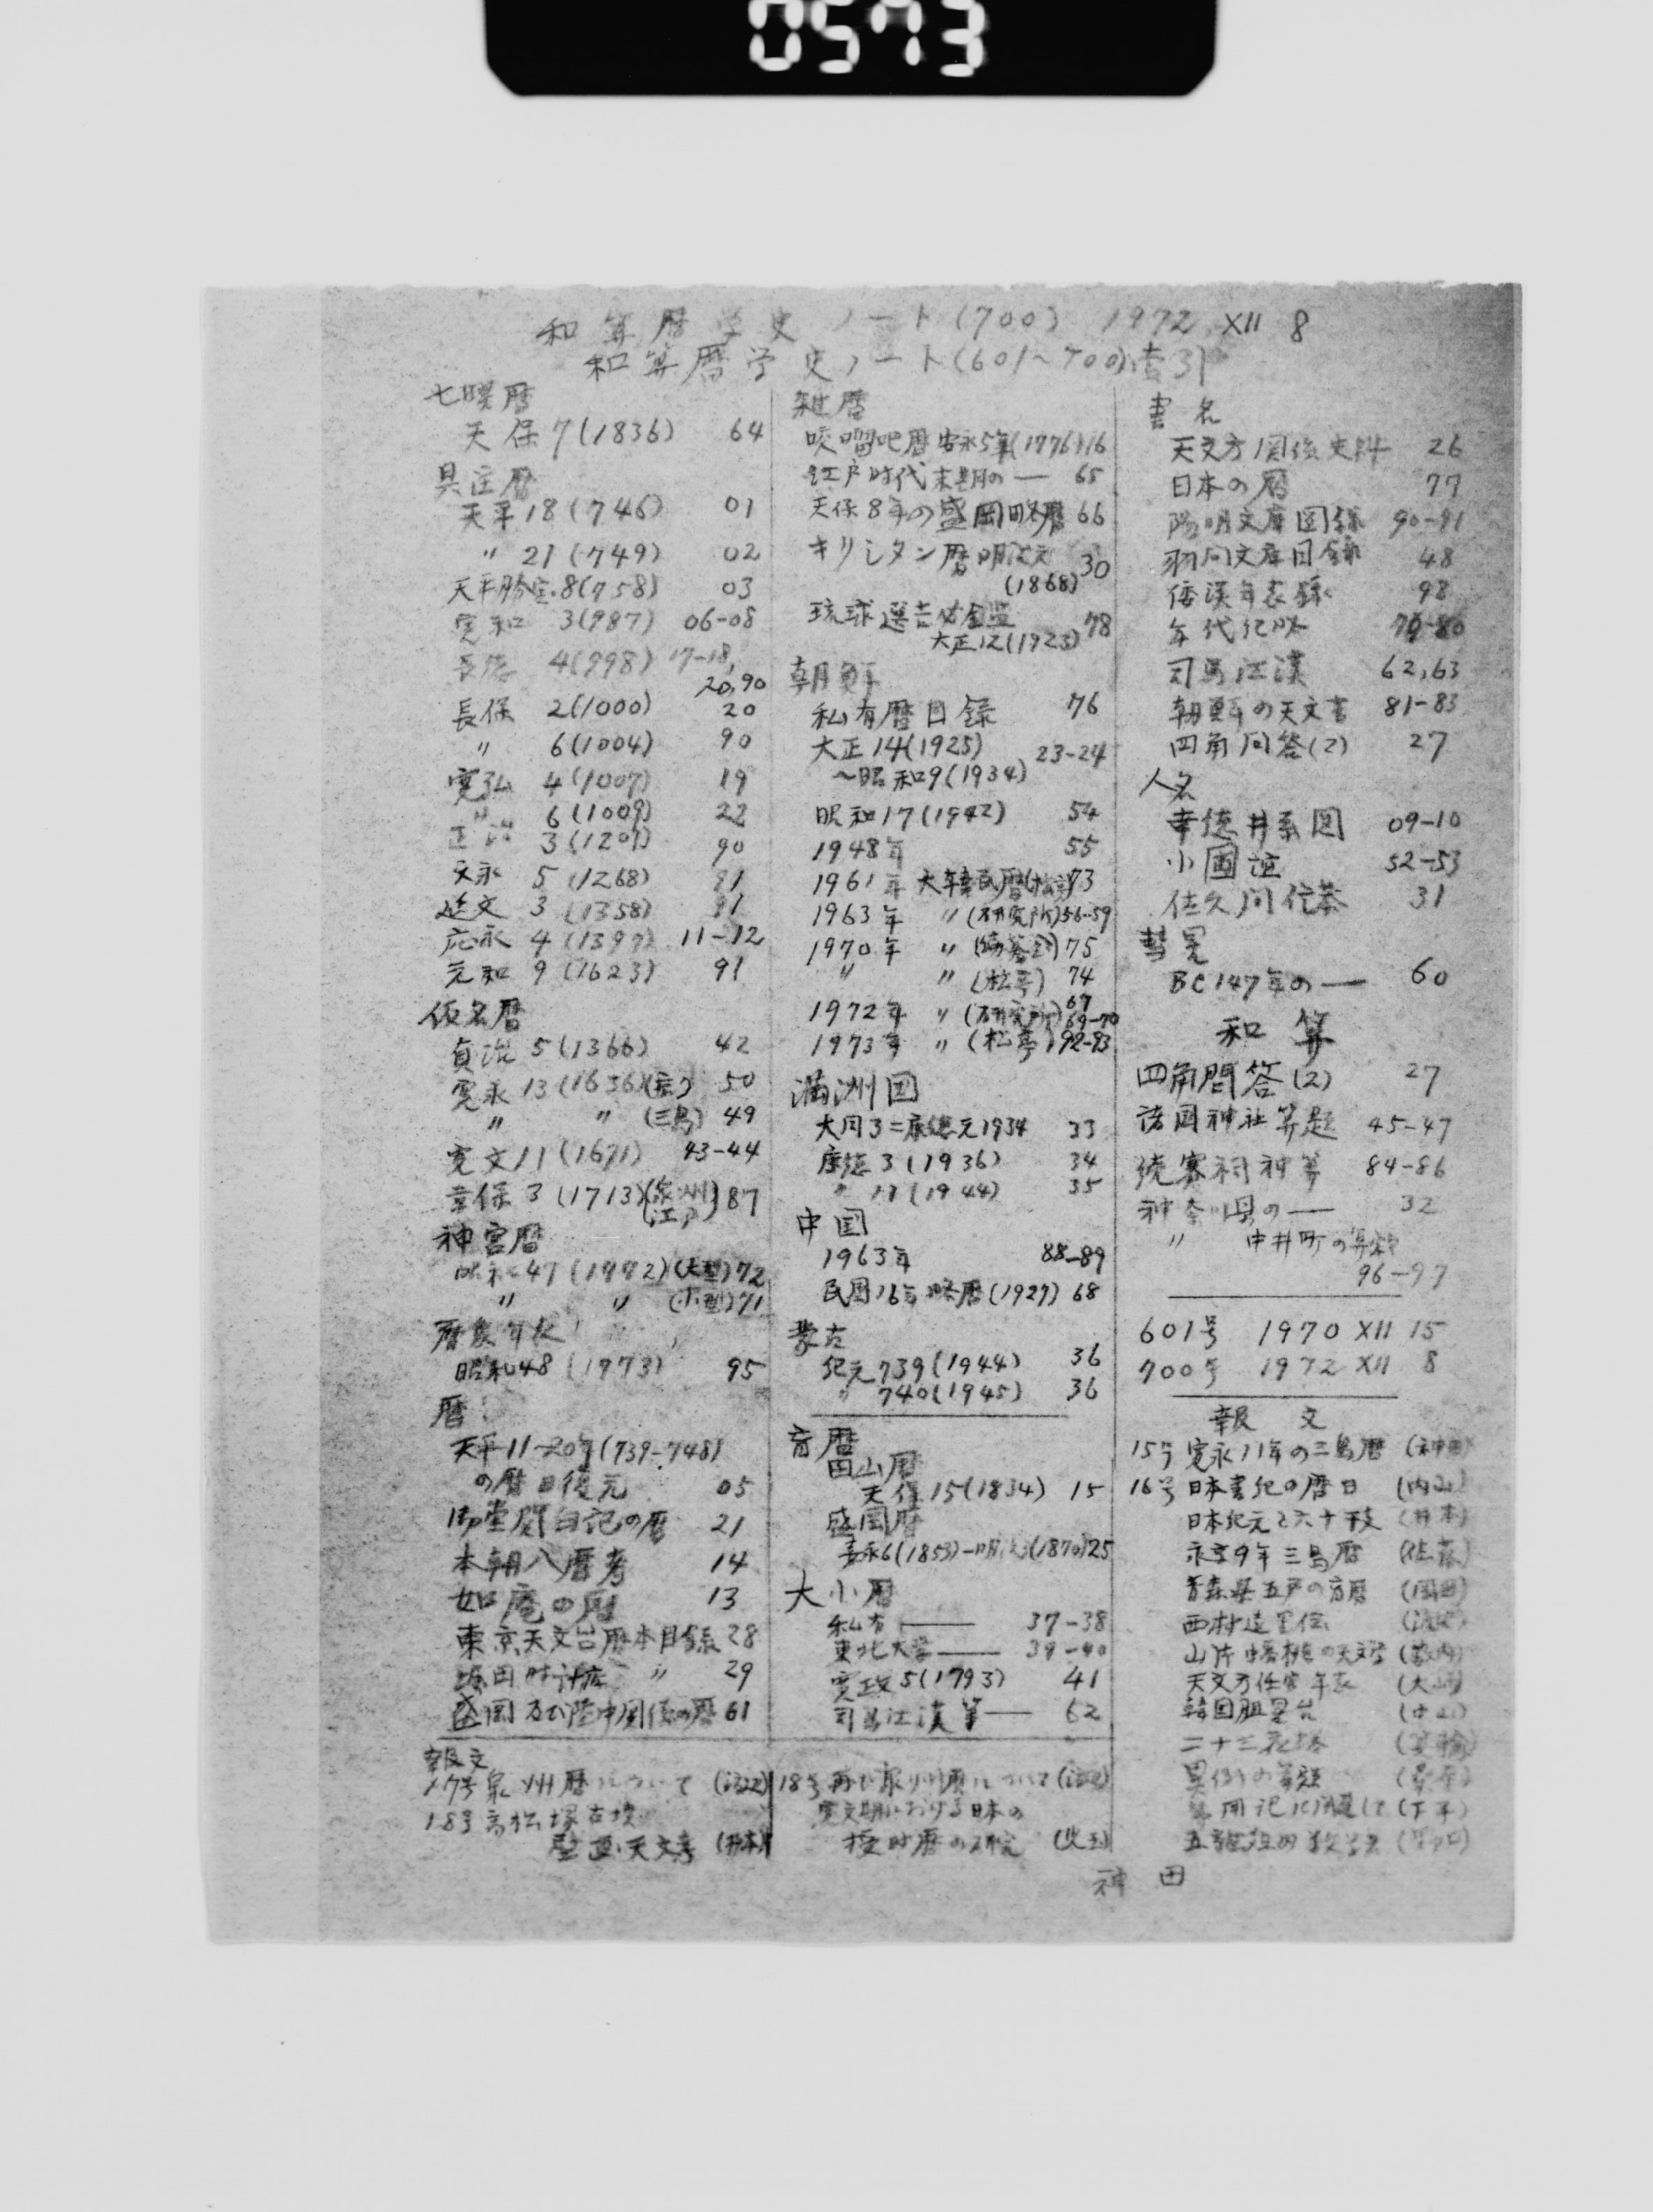 0573
和算暦学史ノート(700) 1972 XII 8
和算暦学史ノート(601~700)索引
七曜暦
天保7(1836) 64
具注暦
天平18(746) 01
〃 21(749) 02
天平勝宝8(758) 03
寛和 3(987) 06-08
長徳 4(998) 17-18,
20,90
長保 2(1000) 20
〃 6(1004) 90
寛弘 4(1007) 19
〃 6(1009) 22
正治 3(1201) 90
文永 5(1268) 91
延文 3(1358) 91
応永 4(1397) 11-12
元和 9(1623) 91
仮名暦
貞治 5(1366) 42
寛永 13(1636)(京) 50
〃 〃 (三島) 49
寛文11(1671) 43-44
享保 3(1713)(泉州)(江戸) 87
神宮暦
昭和47(1972)(大型)72
〃 〃 (小型)71
暦象年表
昭和48(1973) 95
暦
天平11-20年(739-748)
の暦日復元 05
御堂関白記の暦 21
本朝八暦考 14
如庵の暦 13
東京天文台暦本目録 28
塚田時計店 〃 29
盛岡及び陸中関係の暦 61
報文
17号 泉州暦について (渡辺)
18号 高松塚古墳
壁画天文考 (井本)
雑暦
咬𠺕吧暦 安永5年(1776)16
江戸時代末期の― 65
天保8年の盛岡略暦 66
キリシタン暦 明治元
(1868) 30
琉球選吉佑全監
大正12(1923) 78
朝鮮
私有暦目録 76
大正14(1925)
~昭和9(1934) 23-24
昭和17(1942) 54
1948年 55
1961年 大韓民暦(松亭)73
1963年 〃(研究所)56-59
1970年 〃 75
〃 〃(松亭) 74
1972年 〃(研究所)67
69-70
1973年 〃(松亭)92-93
満洲国
大同3=康徳元1934 33
康徳3(1936) 34
〃 11(1944) 35
中国
1963年 88-89
民国16年略暦(1927) 68
蒙古
紀元739(1944) 36
〃 740(1945) 36
盲暦
田山暦
天保15(1834) 15
盛岡暦
嘉永6(1853)-明治3(1870)25
大小暦
私有― 37-38
東北大学― 39-40
寛政5(1793) 41
司馬江漢筆― 62
18号 再び泉州暦について(渡辺)
寛文期における日本の
授時暦の研究
書名
天文方関係史料 26
日本の暦 77
陽明文庫図録 90-91
羽間文庫目録 48
倭漢年表録 98
年代紀略 79-80
司馬江漢 62,63
朝鮮の天文書 81-83
四角問答(2) 27
人名
幸徳井系図 09-10
小国 52-53
佐久間 31
彗星
BC147年の― 60
和算
四角問答(2) 27
諸国神社算題 45-47
続賽祠神算 84-86
神奈川県の― 32
〃 中井町の算額
96-97
601号 1970 XII 15
700号 1972 XII 8
報文
15号 寛永11年の三島暦 (神田)
16号 日本書紀の暦日 (内山)
日本紀元と六十干支 (井本)
永享9年三島暦 (佐藤)
青森県五戸の盲暦 (岡田)
西村遠里伝 (渡辺)
山片蟠桃の天文学 (藪内)
天文方任官年表 (大崎)
韓国瞻星台 (中山)
二十三夜塔
異例の算題
(下平)
神田